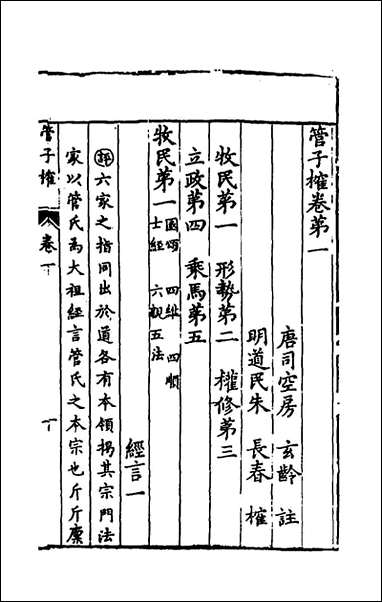 管子榷卷第一
唐司空房 玄齡 註
明道民朱 長春 榷
牧民第一 形勢第二 權修第三
立政第四 乘馬第五
牧民第一 國頌 四維 四順
士經 六親五法
經言一
評六家之指同出於道各有本領搊其宗門法
家以管氏為大祖經言管氏之本宗也斤斤廩
管子榷 卷一